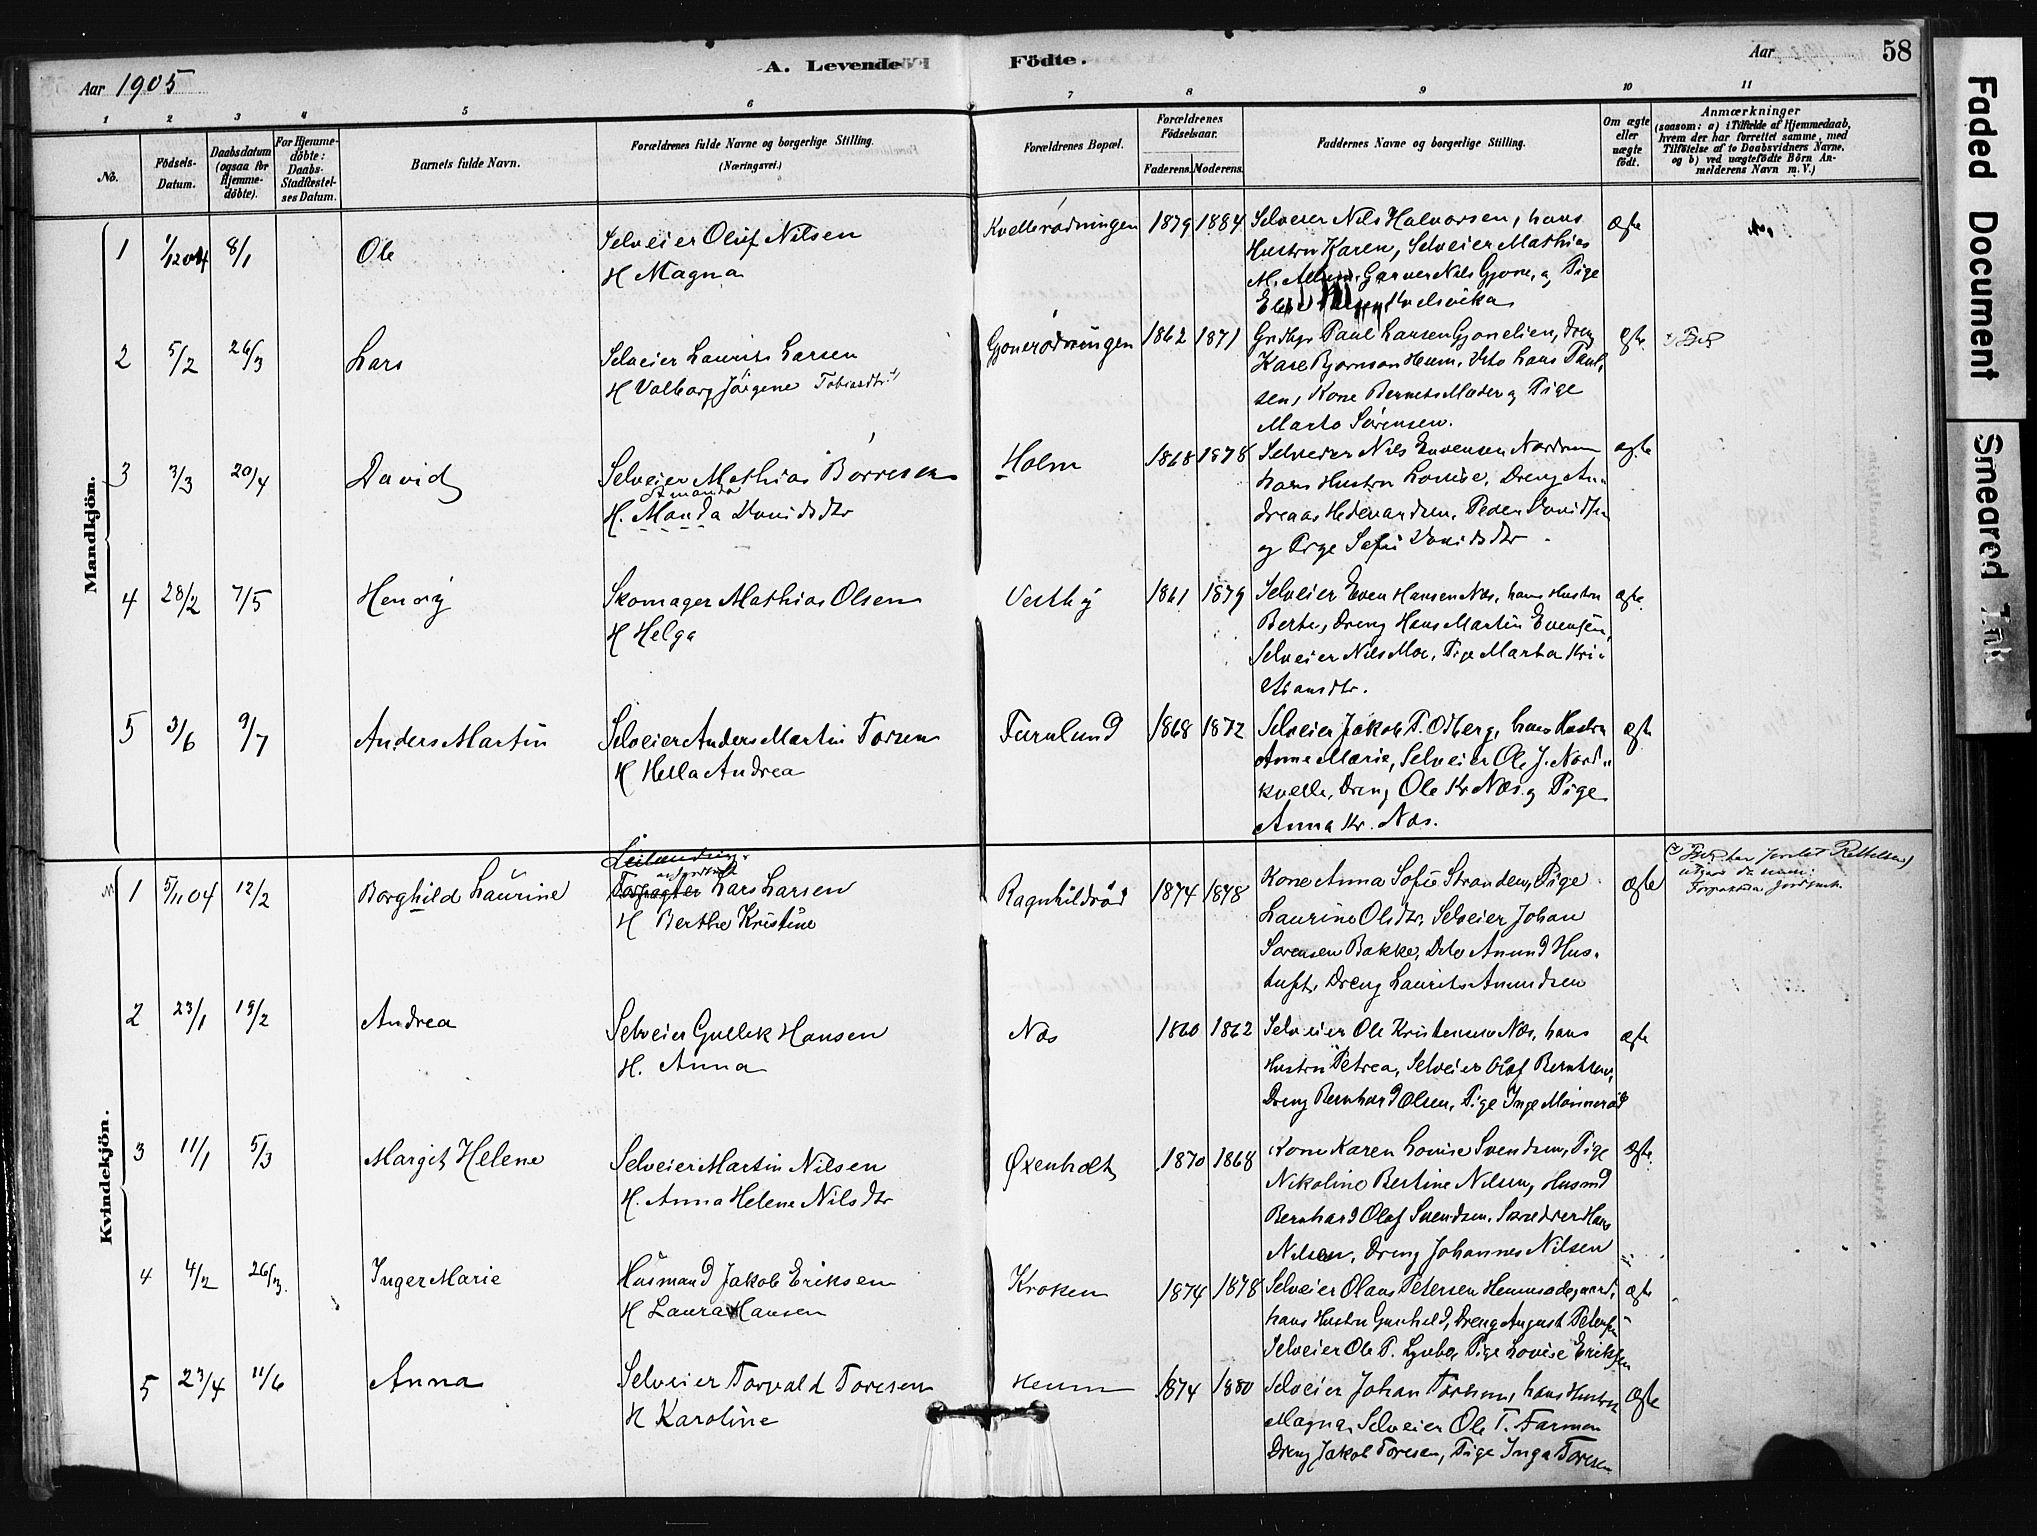 Aar 1905
A. Levende
Födte.
Aar
58
1 2 3 4 5 6 7 8 9 10 11
No.
Födsels-Datum.
Daabsdatum (ogsaa for Hjemme-döbte).
For Hjemme-döbte: Daabs-Stadfæstel-ses Datum.
Barnets fulde Navn.
Forældrenes fulde Navne og borgerlige Stilling.
(Næringsvei.)
Forældrenes Bopæl.
Forældrenes Födselsaar.
Faderens. Moderens.
Faddernes Navne og borgerlige Stilling.
Om ægte eller uægte födt.
Anmærkninger
(saasom: a) i Tilfælde af Hjemmedaab,
hvem der har forrettet samme, med
Tilföielse af to Daabsvidners Navne,
og b) ved uægtefödte Börn An-
melderens Navn m. V.)
Mandkjön.
1 1/12 04 8/1 Ole
Selveier Oluf Nilsen
H Magna
Kvellerödningen 1879 1884
Selveier Nils Halvorsen, hans
Hustru Karen, Selveier Mathias
Garver Nils Gjone, og Pige
ægte
2 5/2 26/3 Lars
Selveier Laurits Larsen
H Valborg Jörgene Tobiasdtr
Gjonerödningen 1862 1871
Grdbgr Paul Larsen Gjonelien, Dreng
Kare Bjornson Heum, Dito Lars Paul-
sen, Kone Mader og Pige
Marta Sörensen.
ægte
3 3/3 20/4 David
Selveier Mathias Börresen
Amanda
H. Manda Davidsdtr
Holm 1868 1878
Selveier Nils Evensen Nordrum
hans Hustru Lovise, Dreng An-
dreas Hedevardsen, Peder Davidsen
og Pige Sofie Davidsdtr.
ægte
4 28/2 7/5 Henry
Skomager Mathias Olsen
H Helga
Vestby 1861 1879
Selveier Even Hansen Næs, hans Hustru
Berte, Dreng Hans Martin Evensen,
Selveier Nils Moe, Pige Marta Kri-
stiansdtr.
ægte
5 3/6 9/7 Anders Martin
Selveier Anders Martin Torsen
H Hella Andrea
Furulund 1868 1872
Selveier Jakob T. Odberg, hans Hustru
Anne Marie, Selveier Ole J. Nord-
kvelle, Dreng Ole Kr Næs og Pige
Anna Kr. Næs.
ægte
Kvindekjön.
1 5/11 04 12/2 Borghild Laurine
Leilænding
Forpagter Lars Larsen
H Berthe Kristine
Ragnhildröd 1874 1878
Kone Anna Sofie Stranden, Pige
Laurine Olsdtr, Selveier Johan
Sorensen Bakke, Dito Amund Hus-
tuft, Dreng Laurits Amundsen
ægte
2 23/1 19/2 Andrea
Selveier Gullik Hansen
H. Anna
Næs 1860 1862
Selveier Ole Kristensen Næs, hans
Hustru Petrea, Selveier Olaf Berntsen,
Dreng Bernhard Olsen, Pige Inge Monneröd
ægte
3 11/1 5/3 Margit Helene
Selveier Martin Nilsen
H. Anna Helene Nilsdtr
Øxenholt 1870 1868
Kone Karen Lovise Svendsen, Pige
Nikoline Bertine Nilsen, Husmand
Bernhard Olaf Svendsen, Skrædder Hans
Nilsen, Dreng Johannes Nilsen
ægte
4 4/2 26/3 Inger Marie
Husmand Jakob Eriksen
H Laura Hansen
Kroken 1874 1878
Selveier Olaus Petersen Heumsodegaard,
hans Hustru Gunhild, Dreng August Petersen
Selveier Ole P. Lyube, Pige Lovise Eriksen
ægte
5 23/4 11/6 Anna
Selveier Torvald Toresen
H Karoline
Heum 1874 1880
Selveier Johan Toresen, hans Hustru
Magna, Selveier Ole T. Farmen
Dreng Jakob Toresen, Pige Inga Toresen
ægte
Faded Document
Smeared Ink